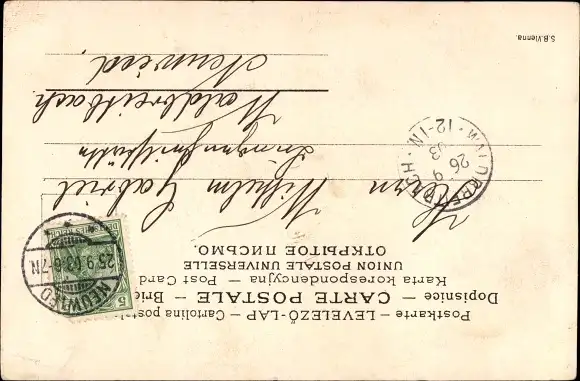 Postkarte – LEVELEZŐ-LAP – Cartolina postale
Dopisnice – CARTE POSTALE – Brie
Karta korespondencyjna – Post Card
UNION POSTALE UNIVERSELLE
ОТКРЫТОЕ ПИСЬМО.
Herrn Wilhelm Gabriel
Waldbreitbach
Neuwied.
NEUWIED
25.9.03.6-7N.
5
WALDBREITBACH
26 9
03
12-1N.
S.B.Vienna.